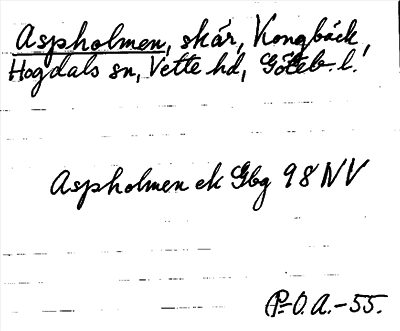 Aspholmen, skär, Kongbäck,
Hogdals sn, Vette hd, Göteb. l.
Aspholmen ek Gbg 98 NV
P.-O. A. -55.